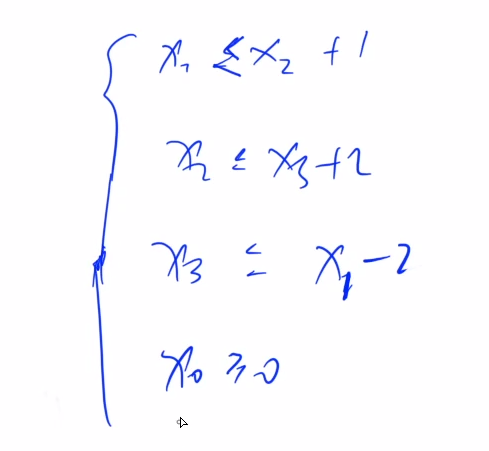 x₁ ≤ x₂ + 1
x₂ ≤ x₃ + 2
x₃ ≤ x₁ - 2
x₀ ≥ 0